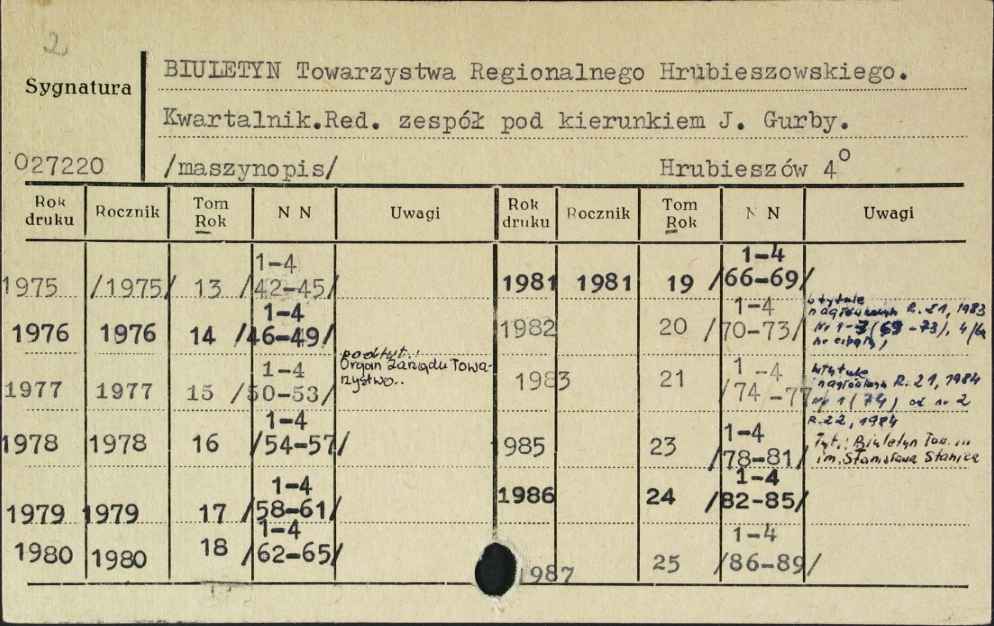 2
Sygnatura
BIULETYN Towarzystwa Regionalnego Hrubieszowskiego.
Kwartalnik.Red. zespół pod kierunkiem J. Gurby.
027220 /maszynopis/ Hrubieszów 4⁰
Rok druku Rocznik Tom Rok N N Uwagi
1975 /1975/ 13 1-4 /42-45/
1976 1976 14 1-4 /46-49/
1977 1977 15 1-4 /50-53/
podtyt.:
Organ Zarządu Towa-
rzystwa..
1978 1978 16 1-4 /54-57/
1979 1979 17 1-4 /58-61/
1980 1980 18 1-4 /62-65/
Rok druku Rocznik Tom Rok N N Uwagi
1981 1981 19 1-4 /66-69/
1982 20 1-4 /70-73/
R. 21, 1983
Nr 1-3 4/
1983 21 1-4 /74-77
R. 21, 1984
nr 1 (74) od nr 2
R. 22, 1984
Tyt.: Biuletyn Tow.
im. Stanisława Staszica
1985 23 1-4 /78-81/
1986 24 1-4 /82-85/
1987 25 1-4 /86-89/